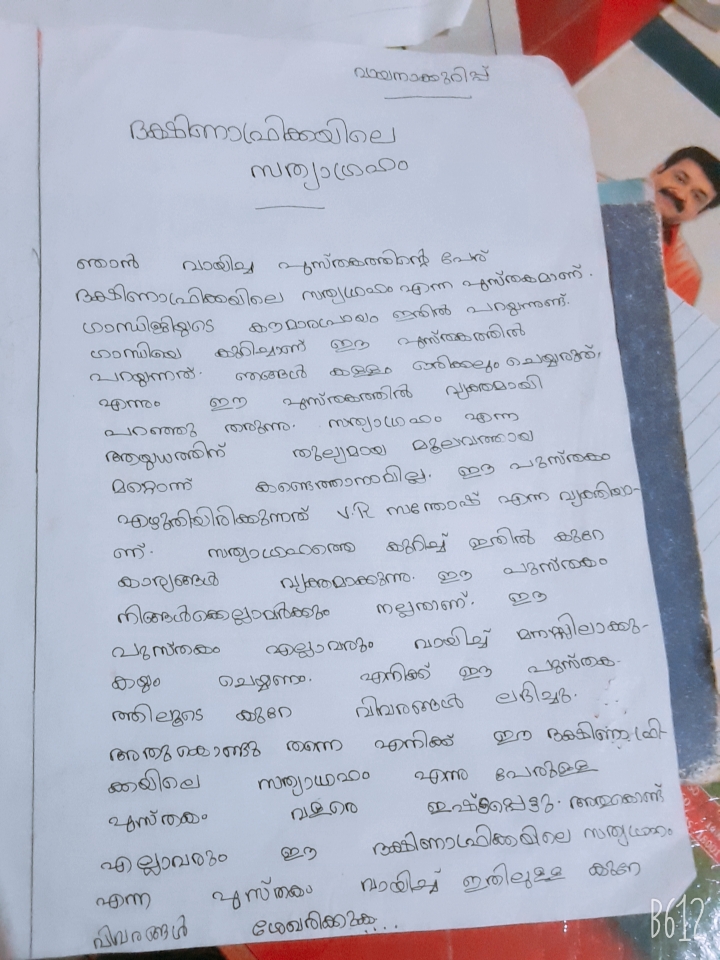 വായനാക്കുറിപ്പ്
ദക്ഷിണാഫ്രിക്കയിലെ
സത്യാഗ്രഹം
ഞാൻ വായിച്ച പുസ്തകത്തിന്റെ പേര്
ദക്ഷിണാഫ്രിക്കയിലെ സത്യഗ്രഹം എന്ന പുസ്തകമാണ്.
ഗാന്ധിജിയുടെ കൗമാരപ്രായം ഇതിൽ പറയുന്നുണ്ട്.
ഗാന്ധിയെ കുറിച്ചാണ് ഈ പുസ്തകത്തിൽ
പറയുന്നത്. ഞങ്ങൾ കള്ളം ഒരിക്കലും ചെയ്യരുത്,
എന്നും ഈ പുസ്തകത്തിൽ വ്യക്തമായി
പറഞ്ഞു തരുന്നു. സത്യാഗ്രഹം എന്ന
ആയുധത്തിന് തുല്യമായ മൂല്യവത്തായ
മറ്റൊന്ന് കണ്ടെത്താനാവില്ല. ഈ പുസ്തകം
എഴുതിയിരിക്കുന്നത് V.R സന്തോഷ് എന്ന വ്യക്തിയാ-
ണ്. സത്യാഗ്രഹത്തെ കുറിച്ച് ഇതിൽ കുറേ
കാര്യങ്ങൾ വ്യക്തമാക്കുന്നു. ഈ പുസ്തകം
നിങ്ങൾക്കെല്ലാവർക്കും നല്ലതാണ്. ഈ
പുസ്തകം എല്ലാവരും വായിച്ച് മനസ്സിലാക്കു-
കയും ചെയ്യണം. എനിക്ക് ഈ പുസ്തക-
ത്തിലൂടെ കുറേ വിവരങ്ങൾ ലഭിച്ചു.
അതുകൊണ്ടു തന്നെ എനിക്ക് ഈ ദക്ഷിണാഫ്രി-
ക്കയിലെ സത്യാഗ്രഹം എന്ന പേരുള്ള
പുസ്തകം വളരെ ഇഷ്ടപ്പെട്ടു. അതുകൊണ്ട്
എല്ലാവരും ഈ ദക്ഷിണാഫ്രിക്കയിലെ സത്യഗ്രഹം
എന്ന പുസ്തകം വായിച്ച് ഇതിലുള്ള കുറേ
വിവരങ്ങൾ ശേഖരിക്കുക....
B612